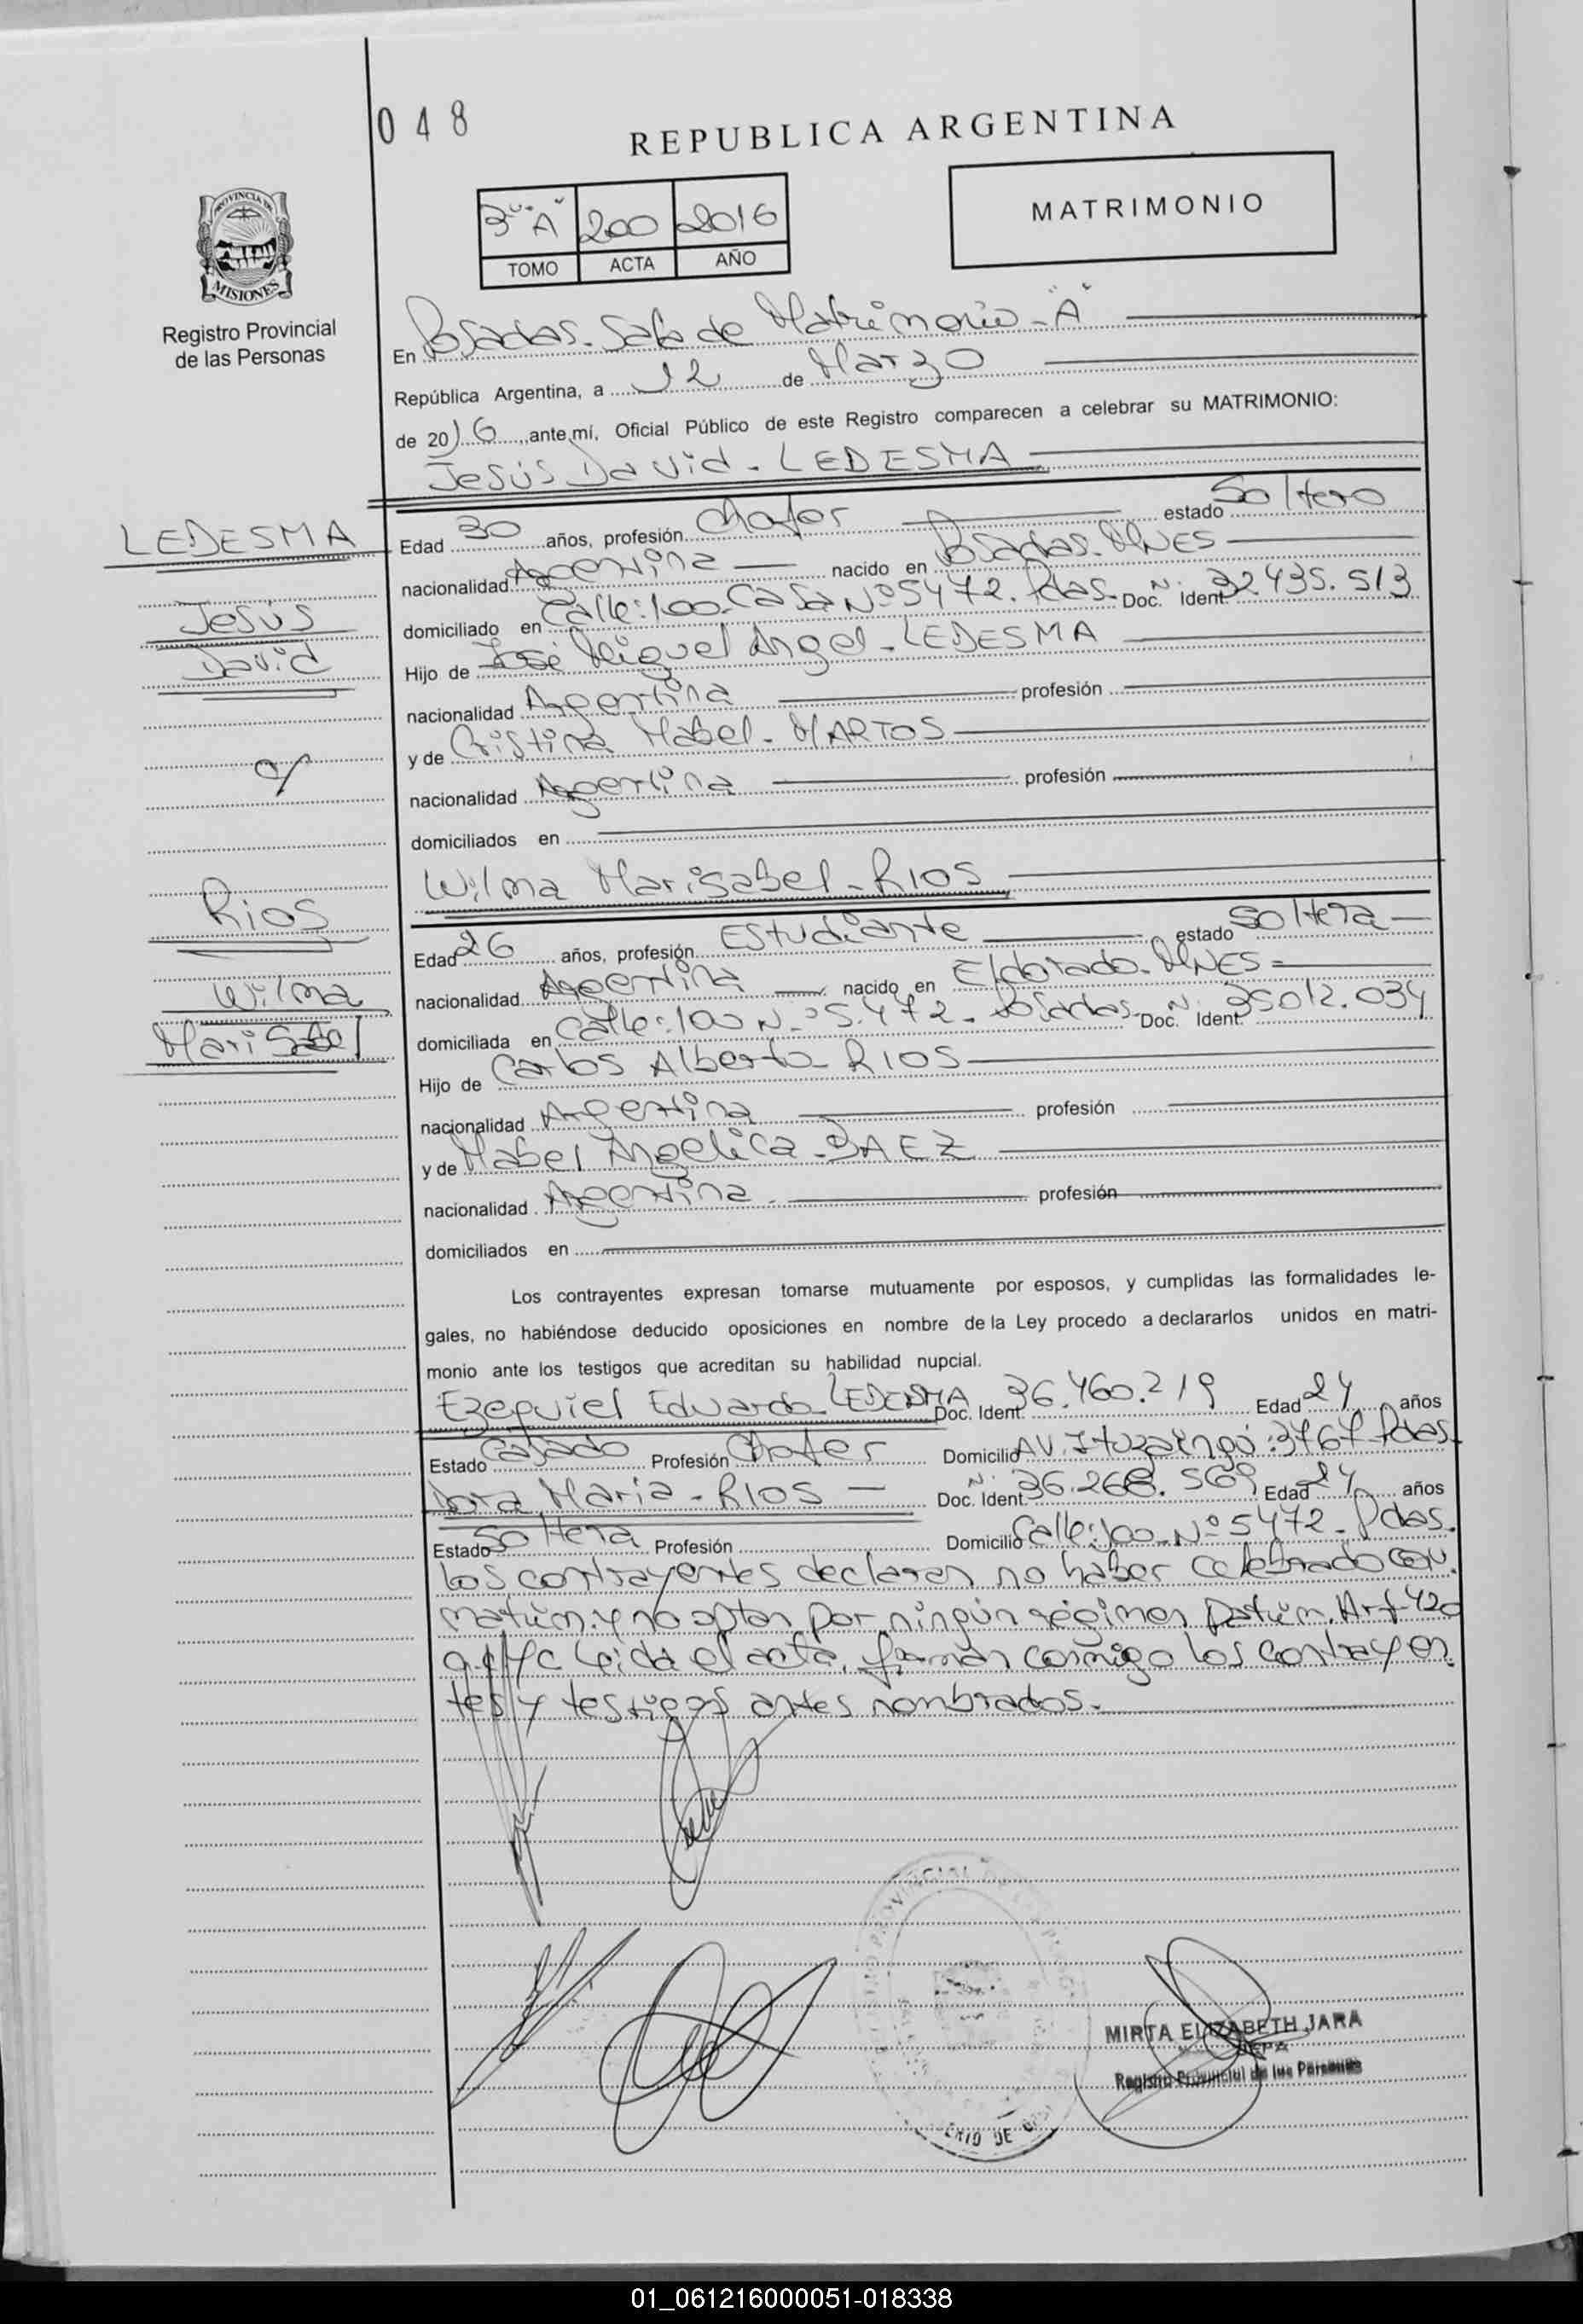 048
REPUBLICA ARGENTINA
PROVINCIA DE
MISIONES
Registro Provincial
de las Personas
3º "A" 200 2016
TOMO ACTA AÑO
MATRIMONIO
En Posadas. Sala de Matrimonio - "A"
República Argentina, a 12 de Marzo
de 2016, ante mí, Oficial Público de este Registro comparecen a celebrar su MATRIMONIO:
Jesús David - LEDESMA
LEDESMA
Jesús
David
c/
Rios
Wilma
Marisabel
Edad 30 años, profesión Chofer estado Soltero
nacionalidad Argentina nacido en Posadas. MNES
domiciliado en Calle: 100. Casa Nº 5472. Pdas. Doc. Ident. Nº 32435.513
Hijo de José Miguel Angel - LEDESMA
nacionalidad Argentina profesión
y de Cristina Mabel - MARTOS
nacionalidad Argentina profesión
domiciliados en
Wilma Marisabel - RIOS
Edad 26 años, profesión Estudiante estado Soltera
nacionalidad Argentina nacido en Eldorado. MNES
domiciliada en Calle: 100 Nº 5.472 - Posadas. Doc. Ident. Nº 35012.034
Hijo de Carlos Alberto - RIOS
nacionalidad Argentina profesión
y de Mabel Angelica - BAEZ
nacionalidad Argentina profesión
domiciliados en
Los contrayentes expresan tomarse mutuamente por esposos, y cumplidas las formalidades le-
gales, no habiéndose deducido oposiciones en nombre de la Ley procedo a declararlos unidos en matri-
monio ante los testigos que acreditan su habilidad nupcial.
Ezequiel Eduardo LEDESMA Doc. Ident. 36.460.219 Edad 24 años
Estado Casado Profesión Chofer Domicilio AV. Ituzaingó: 3767 Pdas.
Dora Maria - RIOS Doc. Ident. Nº 36.268.569 Edad 24 años
Estado Soltera Profesión Domicilio Calle: 100 - Nº 5472 - Pdas.
Los contrayentes declaran no haber celebrado conv.
matrim. y no optan por ningún régimen patrim. Art 420
Leida el acta, firman conmigo los contrayen
tes y testigos antes nombrados.
MIRTA ELIZABETH JARA
JEFA
Registro Provincial de las Personas
01_061216000051-018338